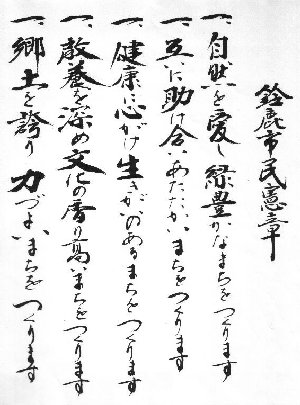 鈴鹿市民憲章
一、自然を愛し緑豊かなまちをつくります
一、互いに助け合いあたたかいまちをつくります
一、健康に心がけ生きがいのあるまちをつくります
一、教養を深め文化の香り高いまちをつくります
一、郷土を誇り力づよいまちをつくります